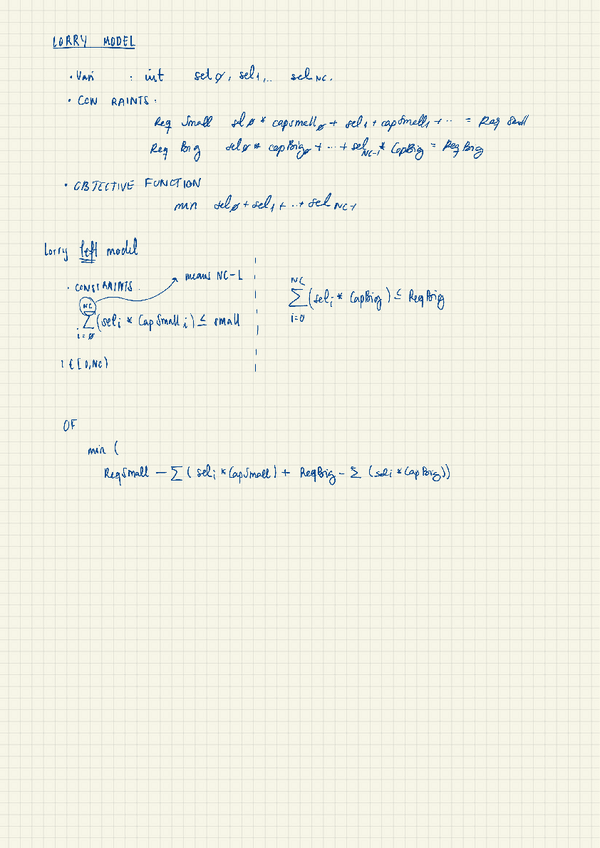 LORRY MODEL
· Vari : int sel0, sel1,.. sel NC.
· CON RAINTS.
Req Small sel0 * capsmall0 + sel1 + capSmall1 + ... = Req Small
Req Big sel0 * capBig0 + ... + selNC-1 * CapBig = ReqBig
· OBJECTIVE FUNCTION
min sel0 + sel1 + ... + sel NC-1
Lorry left model
· CONSTRAINTS. means NC-1
NC
∑ (seli * CapSmall i) ≤ small
i=0
NC
∑ (seli * CapBig) ≤ ReqBig
i=0
i ∈ [0,NC)
OF
min (
ReqSmall − ∑ (seli * CapSmall) + ReqBig − ∑ (seli * CapBig))